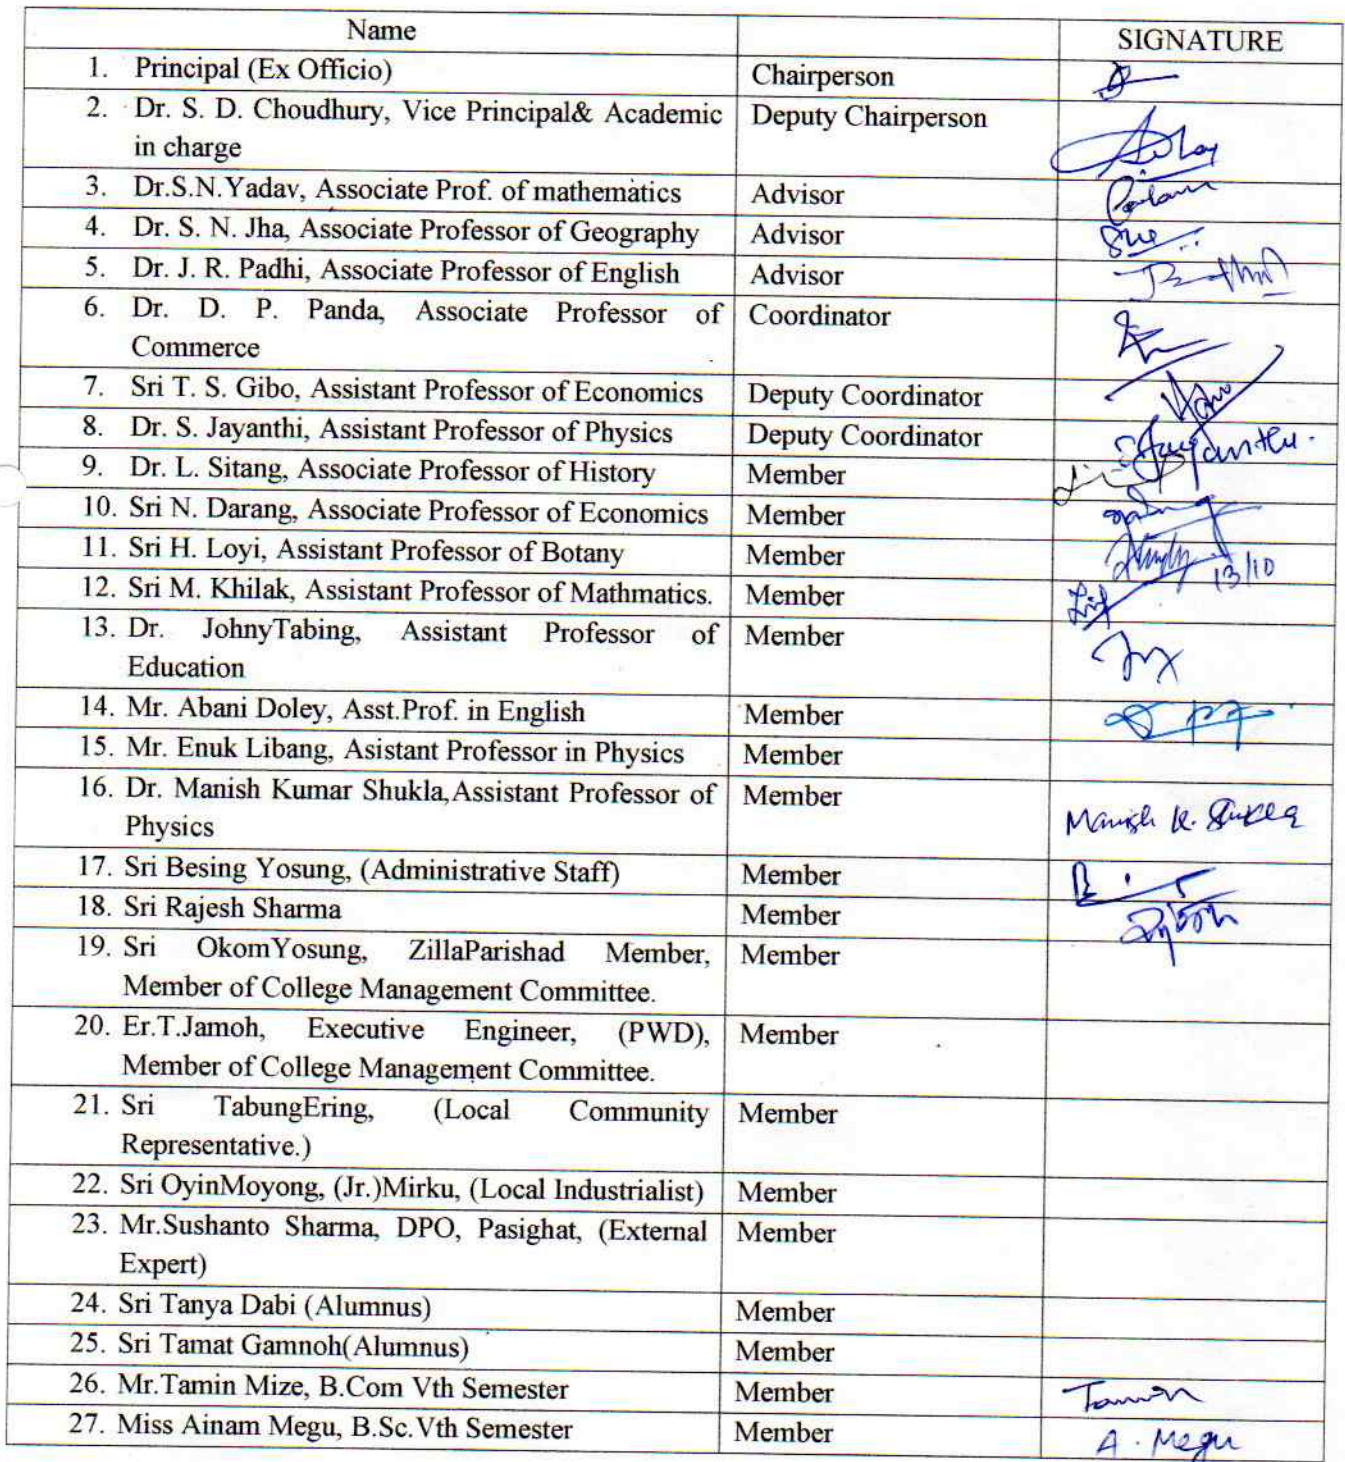 Name SIGNATURE
1. Principal (Ex Officio) Chairperson
2. Dr. S. D. Choudhury, Vice Principal& Academic Deputy Chairperson
in charge
3. Dr.S.N.Yadav, Associate Prof. of mathematics Advisor
4. Dr. S. N. Jha, Associate Professor of Geography Advisor
5. Dr. J. R. Padhi, Associate Professor of English Advisor
6. Dr. D. P. Panda, Associate Professor of Coordinator
Commerce
7. Sri T. S. Gibo, Assistant Professor of Economics Deputy Coordinator
8. Dr. S. Jayanthi, Assistant Professor of Physics Deputy Coordinator S Jayanthi.
9. Dr. L. Sitang, Associate Professor of History Member
10. Sri N. Darang, Associate Professor of Economics Member
11. Sri H. Loyi, Assistant Professor of Botany Member 13/10
12. Sri M. Khilak, Assistant Professor of Mathmatics. Member
13. Dr. JohnyTabing, Assistant Professor of Member
Education
14. Mr. Abani Doley, Asst.Prof. in English Member
15. Mr. Enuk Libang, Asistant Professor in Physics Member
16. Dr. Manish Kumar Shukla,Assistant Professor of Member
Physics Manish K. Shukla
17. Sri Besing Yosung, (Administrative Staff) Member
18. Sri Rajesh Sharma Member
19. Sri OkomYosung, ZillaParishad Member, Member
Member of College Management Committee.
20. Er.T.Jamoh, Executive Engineer, (PWD), Member
Member of College Management Committee.
21. Sri TabungEring, (Local Community Member
Representative.)
22. Sri OyinMoyong, (Jr.)Mirku, (Local Industrialist) Member
23. Mr.Sushanto Sharma, DPO, Pasighat, (External Member
Expert)
24. Sri Tanya Dabi (Alumnus) Member
25. Sri Tamat Gamnoh(Alumnus) Member
26. Mr.Tamin Mize, B.Com Vth Semester Member Tamin
27. Miss Ainam Megu, B.Sc.Vth Semester Member A. Megu